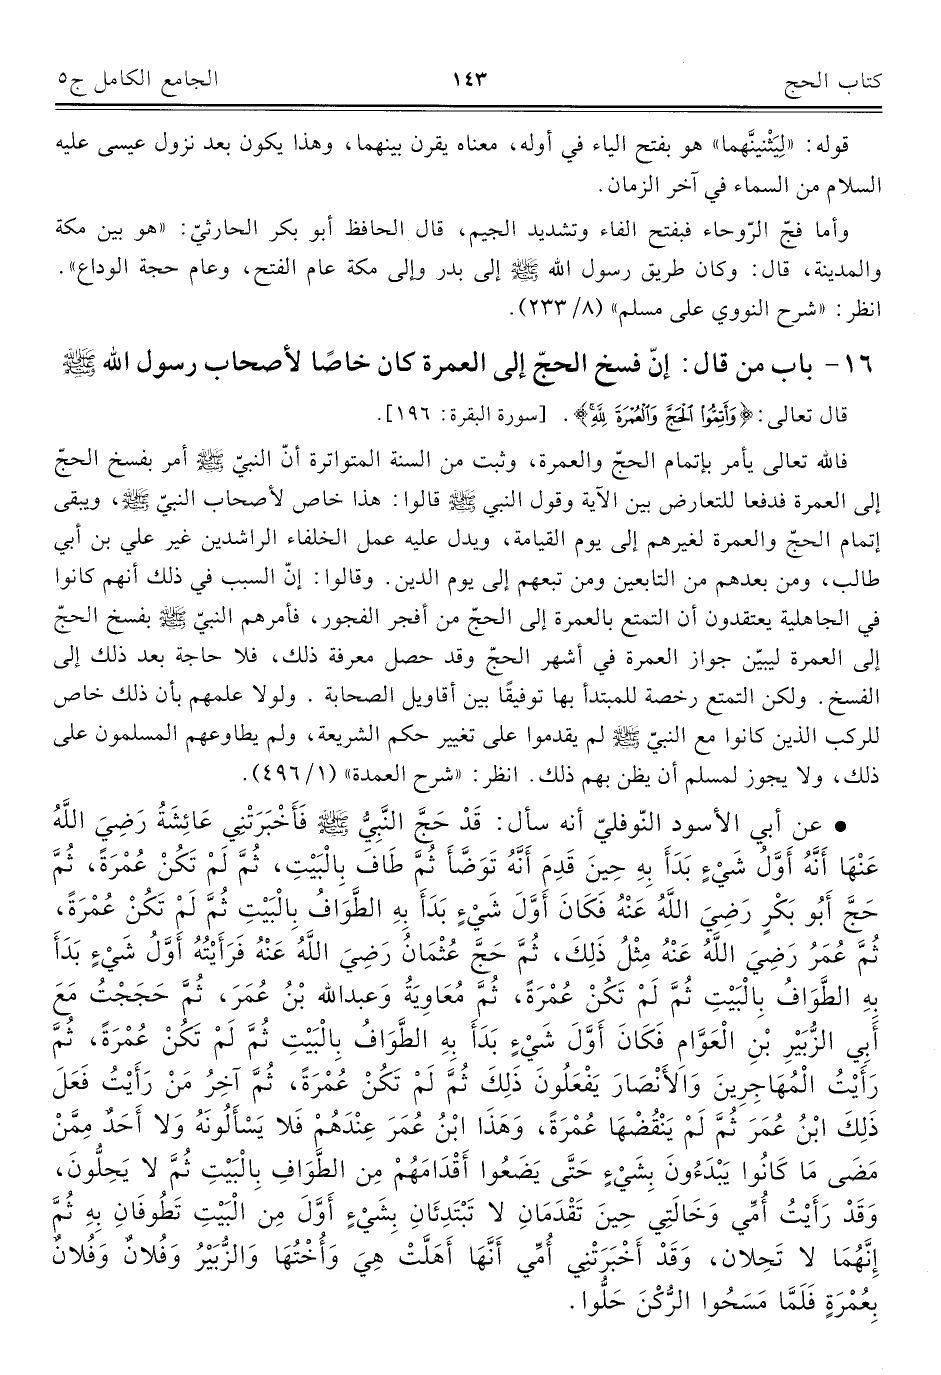 كتاب الحج ١٤٣ الجامع الكامل ج٥
قوله: «لِيَثْنِينَّهما» هو بفتح الياء في أوله، معناه يقرن بينهما، وهذا يكون بعد نزول عيسى عليه
السلام من السماء في آخر الزمان.
وأما فجّ الرّوحاء فبفتح الفاء وتشديد الجيم، قال الحافظ أبو بكر الحارثيّ: «هو بين مكة
والمدينة، قال: وكان طريق رسول الله ﷺ إلى بدر وإلى مكة عام الفتح، وعام حجة الوداع».
انظر: «شرح النووي على مسلم» (٨/ ٢٣٣).
١٦- باب من قال: إنّ فسخ الحجّ إلى العمرة كان خاصًا لأصحاب رسول الله ﷺ
قال تعالى: ﴿وَأَتِمُّوا۟ ٱلْحَجَّ وَٱلْعُمْرَةَ لِلَّهِ﴾. [سورة البقرة: ١٩٦].
فالله تعالى يأمر بإتمام الحجّ والعمرة، وثبت من السنة المتواترة أنّ النبيّ ﷺ أمر بفسخ الحجّ
إلى العمرة فدفعا للتعارض بين الآية وقول النبي ﷺ قالوا: هذا خاص لأصحاب النبيّ ﷺ، ويبقى
إتمام الحجّ والعمرة لغيرهم إلى يوم القيامة، ويدل عليه عمل الخلفاء الراشدين غير علي بن أبي
طالب، ومن بعدهم من التابعين ومن تبعهم إلى يوم الدين. وقالوا: إنّ السبب في ذلك أنهم كانوا
في الجاهلية يعتقدون أن التمتع بالعمرة إلى الحجّ من أفجر الفجور، فأمرهم النبيّ ﷺ بفسخ الحجّ
إلى العمرة ليبيّن جواز العمرة في أشهر الحجّ وقد حصل معرفة ذلك، فلا حاجة بعد ذلك إلى
الفسخ. ولكن التمتع رخصة للمبتدأ بها توفيقًا بين أقاويل الصحابة . ولولا علمهم بأن ذلك خاص
للركب الذين كانوا مع النبيّ ﷺ لم يقدموا على تغيير حكم الشريعة، ولم يطاوعهم المسلمون على
ذلك، ولا يجوز لمسلم أن يظن بهم ذلك. انظر: «شرح العمدة» (١/ ٤٩٦).
• عن أبي الأسود النّوفليّ أنه سأل: قَدْ حَجَّ النَّبِيُّ ﷺ فَأَخْبَرَتْنِي عَائِشَةُ رَضِيَ اللَّهُ
عَنْهَا أَنَّهُ أَوَّلُ شَيْءٍ بَدَأَ بِهِ حِينَ قَدِمَ أَنَّهُ تَوَضَّأَ ثُمَّ طَافَ بِالْبَيْتِ، ثُمَّ لَمْ تَكُنْ عُمْرَةً، ثُمَّ
حَجَّ أَبُو بَكْرٍ رَضِيَ اللَّهُ عَنْهُ فَكَانَ أَوَّلَ شَيْءٍ بَدَأَ بِهِ الطَّوَافُ بِالْبَيْتِ ثُمَّ لَمْ تَكُنْ عُمْرَةً،
ثُمَّ عُمَرُ رَضِيَ اللَّهُ عَنْهُ مِثْلُ ذَلِكَ، ثُمَّ حَجَّ عُثْمَانُ رَضِيَ اللَّهُ عَنْهُ فَرَأَيْتُهُ أَوَّلُ شَيْءٍ بَدَأَ
بِهِ الطَّوَافُ بِالْبَيْتِ ثُمَّ لَمْ تَكُنْ عُمْرَةً، ثُمَّ مُعَاوِيَةُ وَعبدالله بْنُ عُمَرَ، ثُمَّ حَجَجْتُ مَعَ
أَبِي الزُّبَيْرِ بْنِ الْعَوَّامِ فَكَانَ أَوَّلَ شَيْءٍ بَدَأَ بِهِ الطَّوَافُ بِالْبَيْتِ ثُمَّ لَمْ تَكُنْ عُمْرَةً، ثُمَّ
رَأَيْتُ الْمُهَاجِرِينَ وَالأَنْصَارَ يَفْعَلُونَ ذَلِكَ ثُمَّ لَمْ تَكُنْ عُمْرَةً، ثُمَّ آخِرُ مَنْ رَأَيْتُ فَعَلَ
ذَلِكَ ابْنُ عُمَرَ ثُمَّ لَمْ يَنْقُضْهَا عُمْرَةً، وَهَذَا ابْنُ عُمَرَ عِنْدَهُمْ فَلا يَسْأَلُونَهُ وَلا أَحَدٌ مِمَّنْ
مَضَى مَا كَانُوا يَبْدَءُونَ بِشَيْءٍ حَتَّى يَضَعُوا أَقْدَامَهُمْ مِن الطَّوَافِ بِالْبَيْتِ ثُمَّ لا يَحِلُّونَ،
وَقَدْ رَأَيْتُ أُمِّي وَخَالَتِي حِينَ تَقْدَمَانِ لا تَبْتَدِئَانِ بِشَيْءٍ أَوَّلَ مِن الْبَيْتِ تَطُوفَانِ بِهِ ثُمَّ
إِنَّهُمَا لا تَحِلان، وَقَدْ أَخْبَرَتْنِي أُمِّي أَنَّهَا أَهَلَّتْ هِيَ وَأُخْتُهَا وَالزُّبَيْرُ وَفُلانٌ وَفُلانٌ
بِعُمْرَةٍ فَلَمَّا مَسَحُوا الرُّكْنَ حَلُّوا.